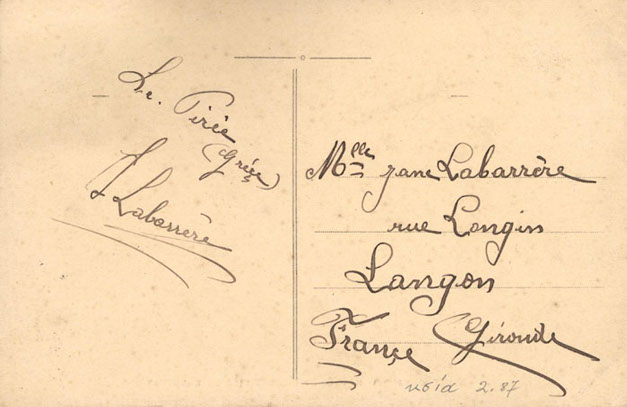 Le. Pirée
(Grèce)
J Labarrère
Mlle Jane Labarrère
rue Longin
Langon
(Gironde
France
2.87